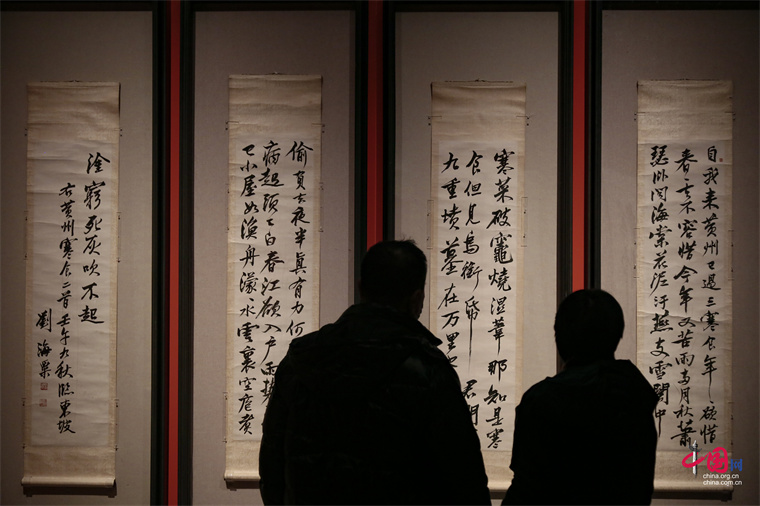 自我来黄州已過三寒食年〻欲惜
春去不容惜今年又苦雨兩月秋蕭
瑟卧聞海棠花泥汙燕支雪闇中
偷負去夜半真有力何
病起頭已白春江欲入户雨勢
已小屋如漁舟濛水雲裏空庖煮
寒菜破竈燒溼葦那知是寒
食但見烏銜帋 君門
九重墳墓在万里
塗窮死灰吹不起
右黄州寒食二首壬午九秋臨東坡
劉海粟
中国网
china.org.cn
china.com.cn